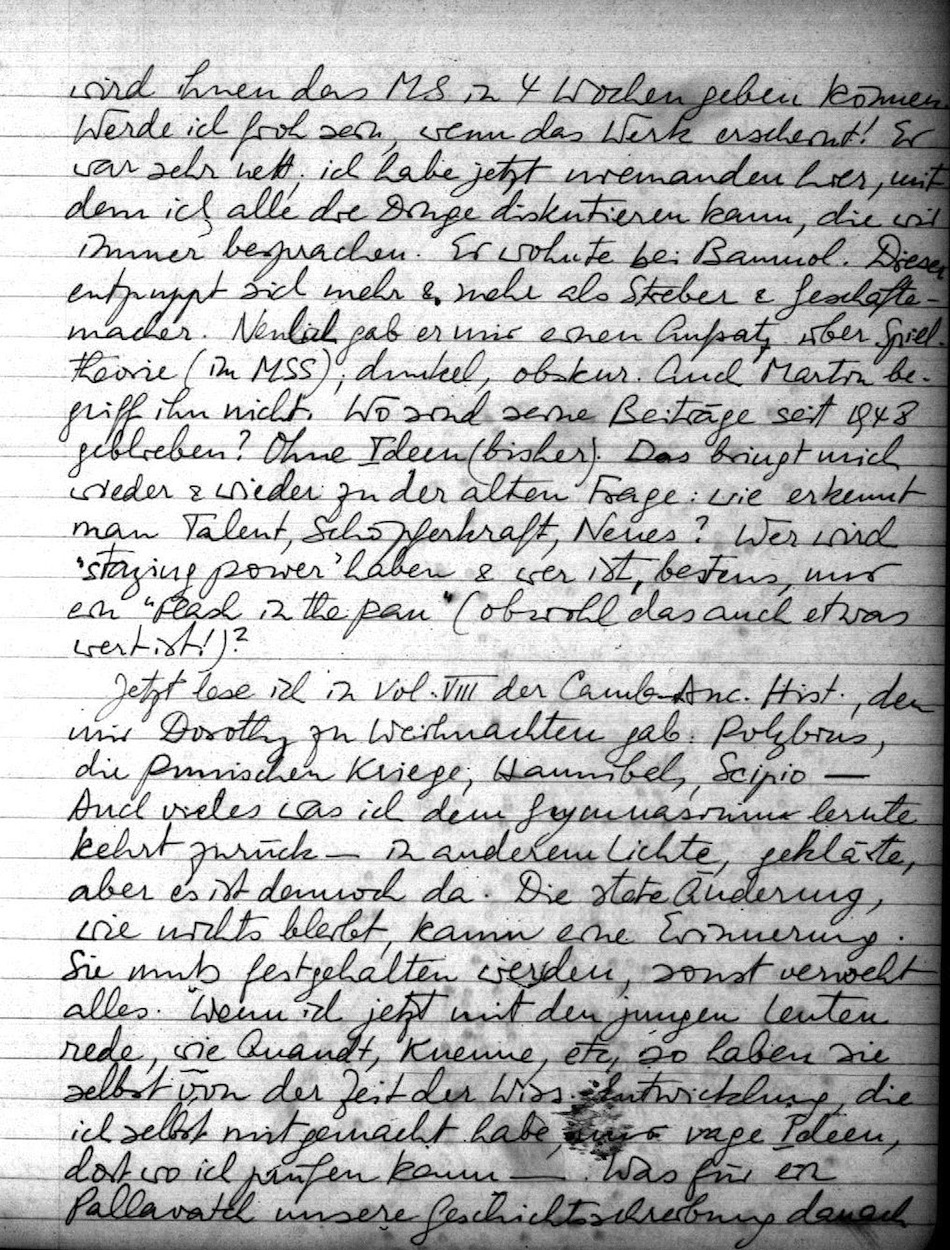 wird ihnen das MS in 4 Wochen geben können
Werde ich froh sein, wenn das Werk erscheint! Er
war sehr nett; ich habe jetzt niemanden hier, mit
dem ich alle die Dinge diskutieren kann, die wir
immer besprachen. Er wohnte bei Baumol. Dieser
entpuppt sich mehr & mehr als Streber & Geschäfte-
macher. Neulich gab er mir einen Aufsatz über Spiel-
theorie (im MSS); dunkel, obskur. Auch Martin be-
griff ihn nicht. Wo sind seine Beiträge seit 1948
geblieben? Ohne Ideen (bisher). Das bringt mich
wieder & wieder zu der alten Frage: wie erkennt
man Talent, Schöpferkraft, Neues? Wer wird
'staying power' haben & wer ist, bestens, nur
ein "flash in the pan" (obwohl das auch etwas
wert ist!)?
Jetzt lese ich in Vol. VIII der Camb. Anc. Hist., den
mir Dorothy zu Weihnachten gab. Polybius,
die punischen Kriege, Hannibal, Scipio —
Auch vieles was ich dem Gymnasium lernte
kehrt zurück — in anderem Lichte, geklärte,
aber es ist dennoch da. Die stete Änderung,
wie nichts bleibt, kaum eine Erinnerung.
Sie muß festgehalten werden, sonst verweht
alles. Wenn ich jetzt mit den jungen Leuten
rede, wie Quandt, Kuenne, etc, so haben sie
selbst von der Zeit der Wiss. Entwicklung, die
ich selbst mitgemacht habe, nur vage Ideen,
dort wo ich prüfen kann —. Was für ein
Pallawatch unsere Geschichtsschreibung danach